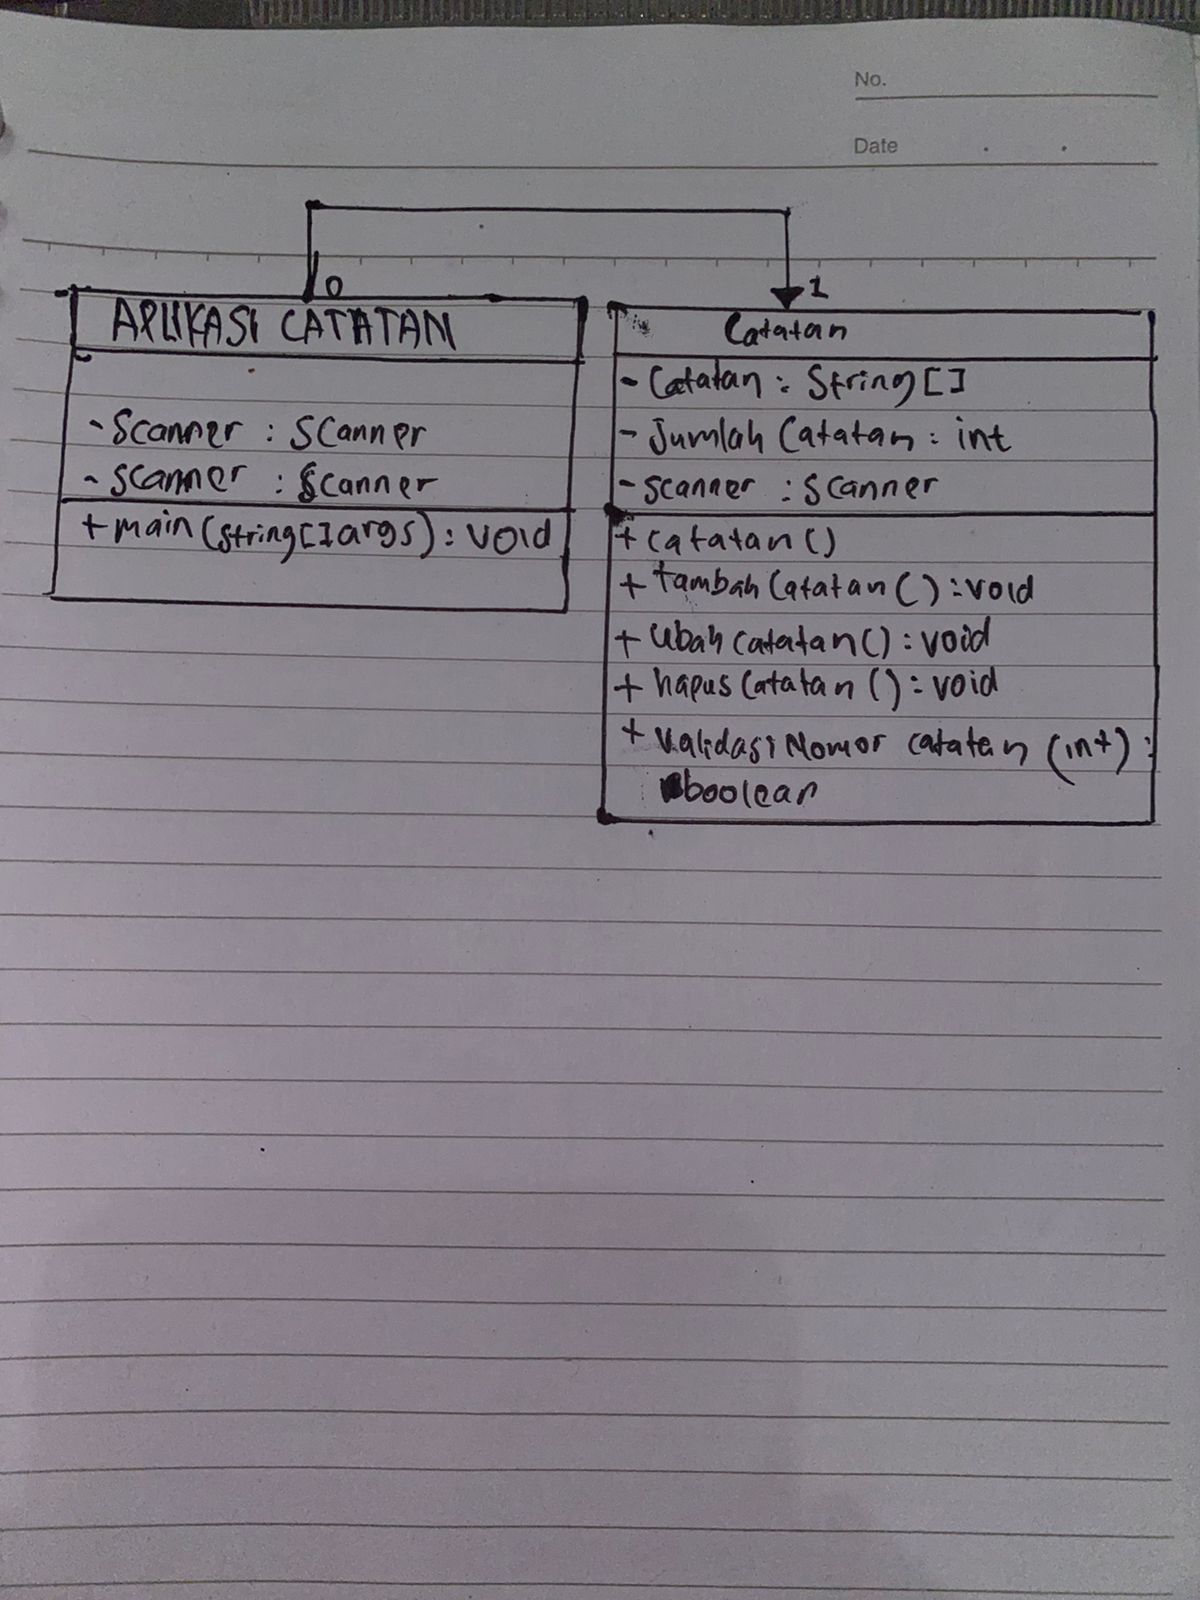 No.
Date
0
1
APLIKASI CATATAN
- Scanner : Scanner
- scanner : Scanner
+ main (String[] args) : void
Catatan
- Catatan : String []
- Jumlah Catatan : int
- scanner : Scanner
+ catatan ()
+ tambah Catatan () : void
+ Ubah catatan () : void
+ hapus Catatan () : void
+ Validasi Nomor catatan (int) :
boolean